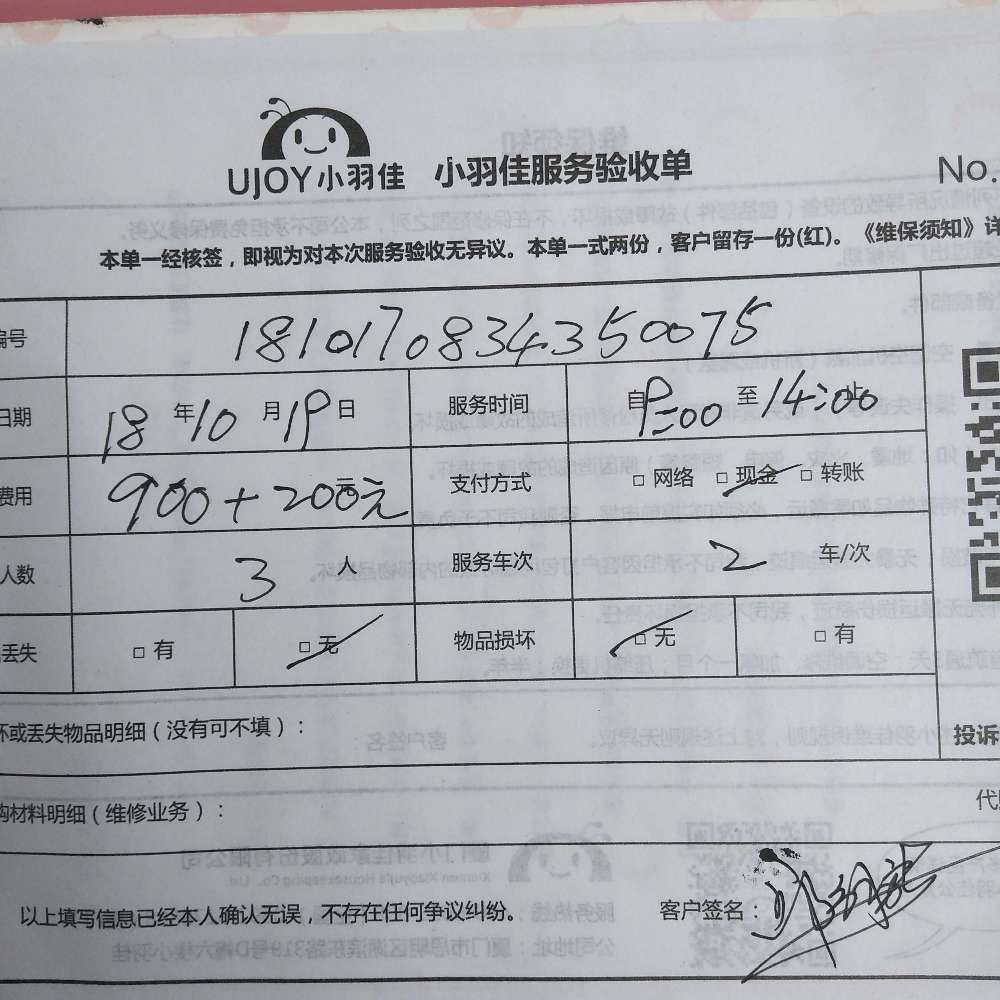 UJOY小羽佳 小羽佳服务验收单 No.
本单一经核签，即视为对本次服务验收无异议。本单一式两份，客户留存一份(红)。《维保须知》详
编号 1810170834350075
日期 18年10月19日 服务时间 自9:00至14:00止
费用 900+200元 支付方式 □ 网络 □ 现金 □ 转账
人数 3人 服务车次 2车/次
丢失 □ 有 □ 无 物品损坏 □ 无 □ 有
坏或丢失物品明细（没有可不填）：
投诉
购材料明细（维修业务）：
以上填写信息已经本人确认无误，不存在任何争议纠纷。 客户签名：